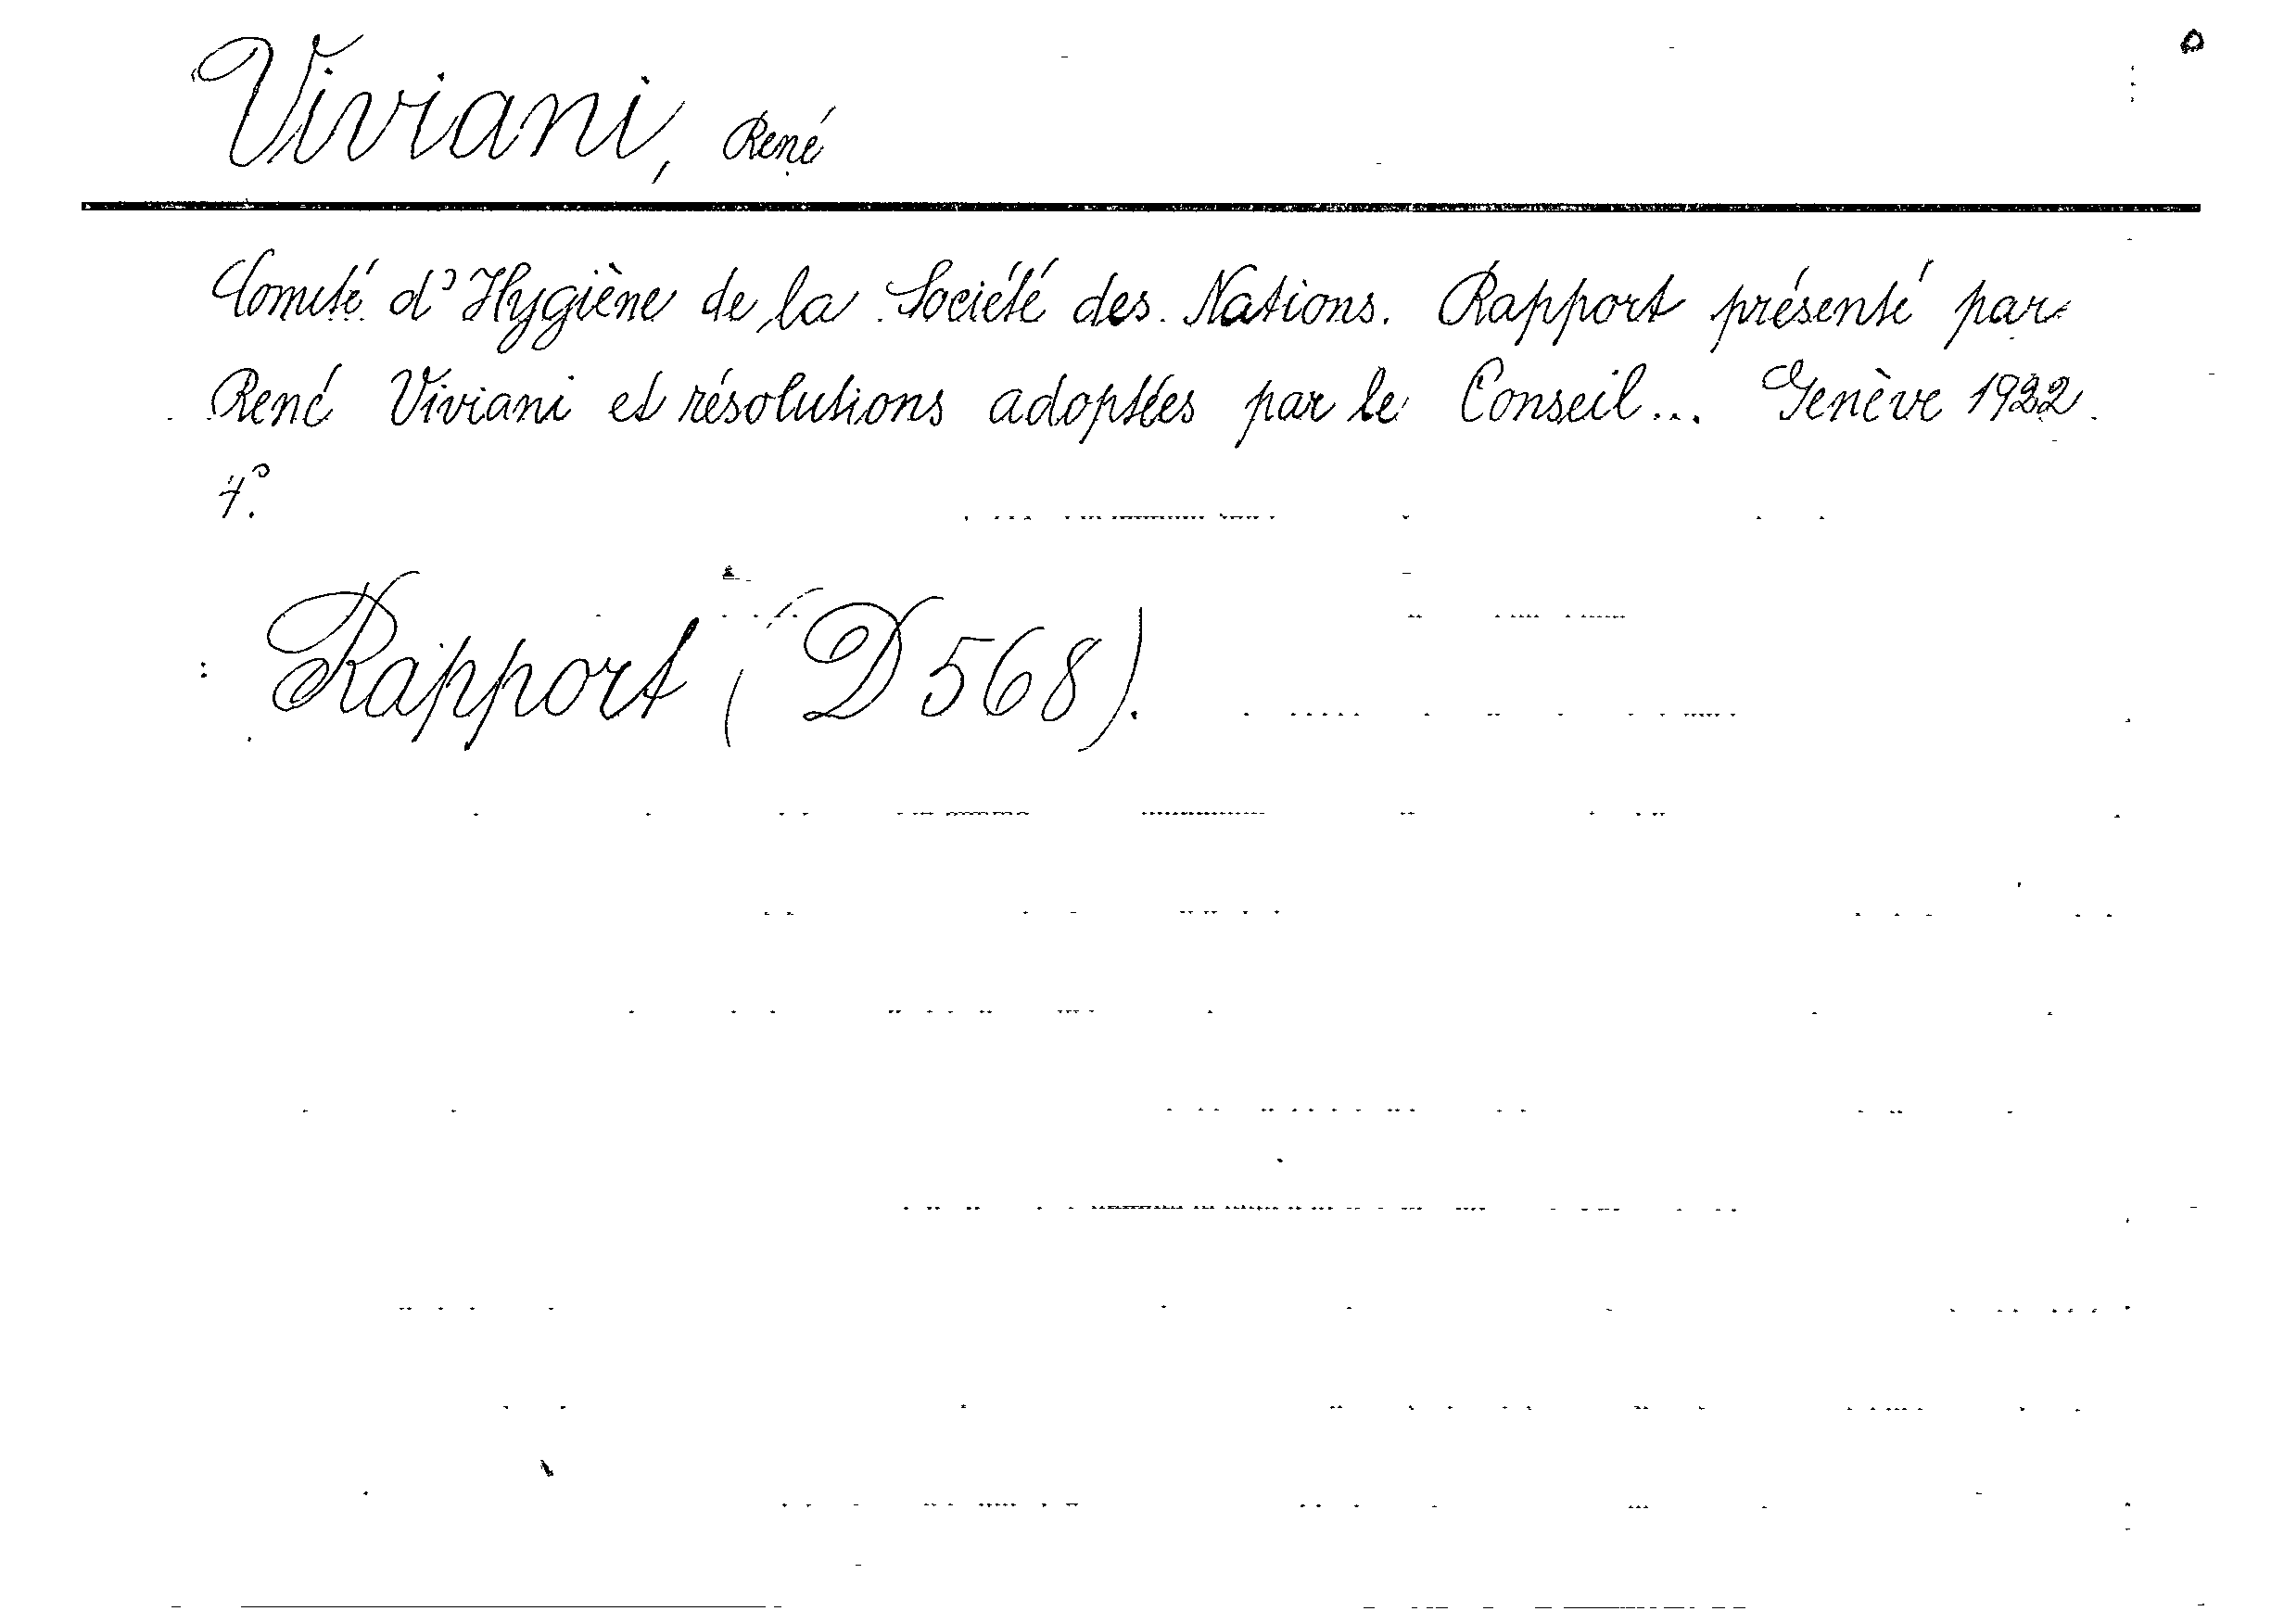 Viviani, René
Comité d'Hygiène de la Société des Nations. Rapport présenté par
René Viviani et résolutions adoptées par le Conseil... Genève 1922.
4°.
Rapport (D 568).